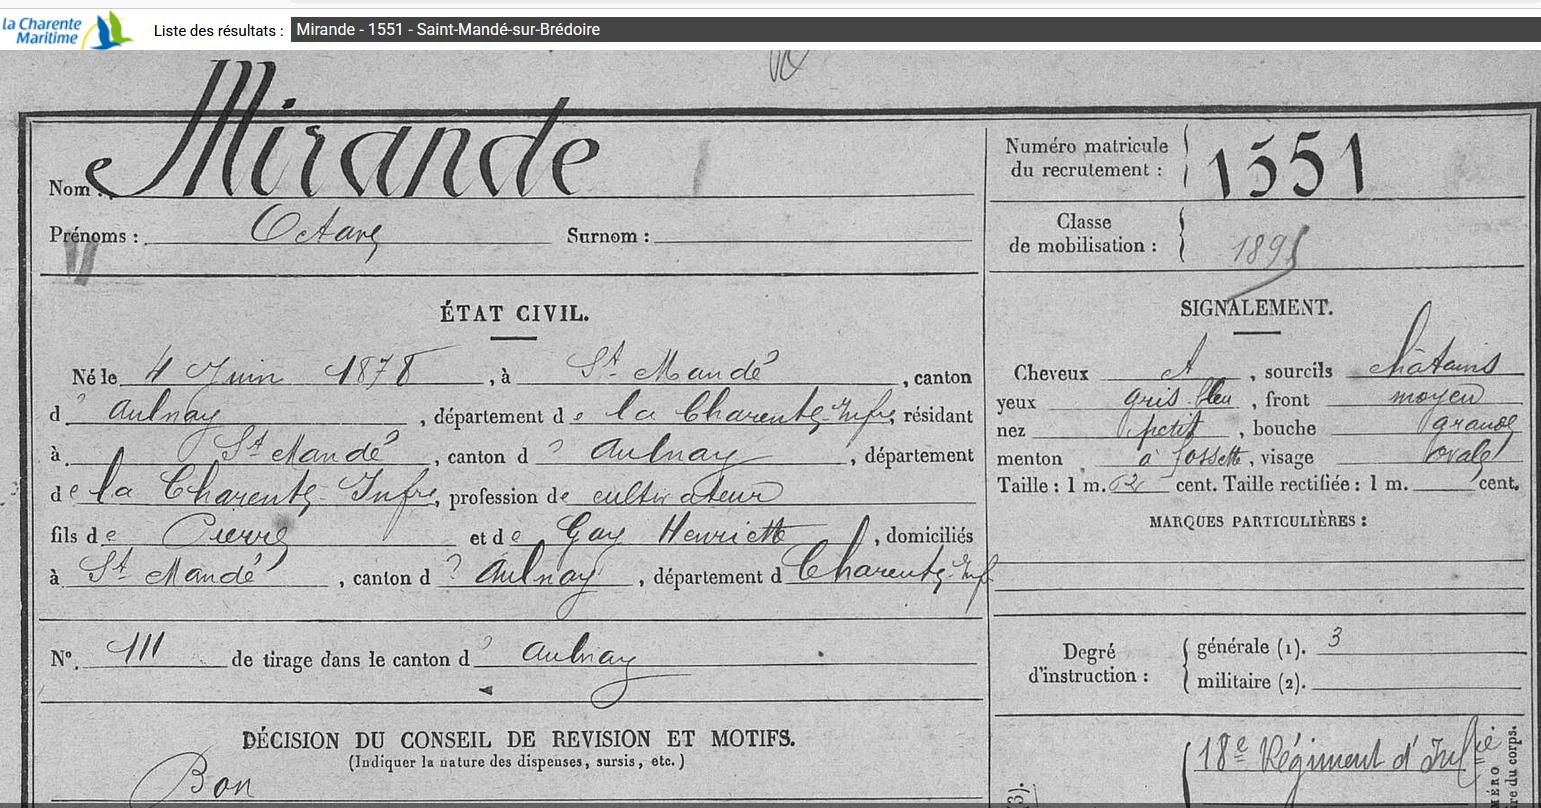 la Charente
Maritime
Liste des résultats : Mirande - 1551 - Saint-Mandé-sur-Brédoire
Nom : Mirande
Prénoms : Octave Surnom :
Numéro matricule
du recrutement : 1551
Classe
de mobilisation : 1895
ÉTAT CIVIL.
Né le 4 Juin 1878, à St Mandé, canton
d' Aulnay, département de la Charente-Infre, résidant
à St Mandé, canton d' Aulnay, département
de la Charente-Infre, profession de cultivateur
fils de Pierre et de Gay Henriette, domiciliés
à St Mandé, canton d' Aulnay, département d Charente-Inf
N° 111 de tirage dans le canton d' Aulnay
DÉCISION DU CONSEIL DE REVISION ET MOTIFS.
(Indiquer la nature des dispenses, sursis, etc.)
Bon
SIGNALEMENT.
Cheveux et, sourcils châtains
yeux gris bleu, front moyen
nez petit, bouche grande
menton à fossette, visage ovale
Taille : 1 m. 62 cent. Taille rectifiée : 1 m. cent.
MARQUES PARTICULIÈRES :
Degré
d'instruction :
générale (1). 3
militaire (2).
18e Régiment d'Infie
(3).
NUMÉRO
re du corps.